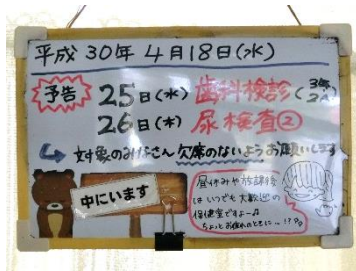 平成30年4月18日(水)
予告
25日(水) 歯科検診(3年 2A)
26日(木) 尿検査②
対象のみなさん欠席のないようお願いします
中にいます
昼休みや放課後
はいつでも大歓迎の
保健室ですよー♫
ちょっとお疲れのときに…!?